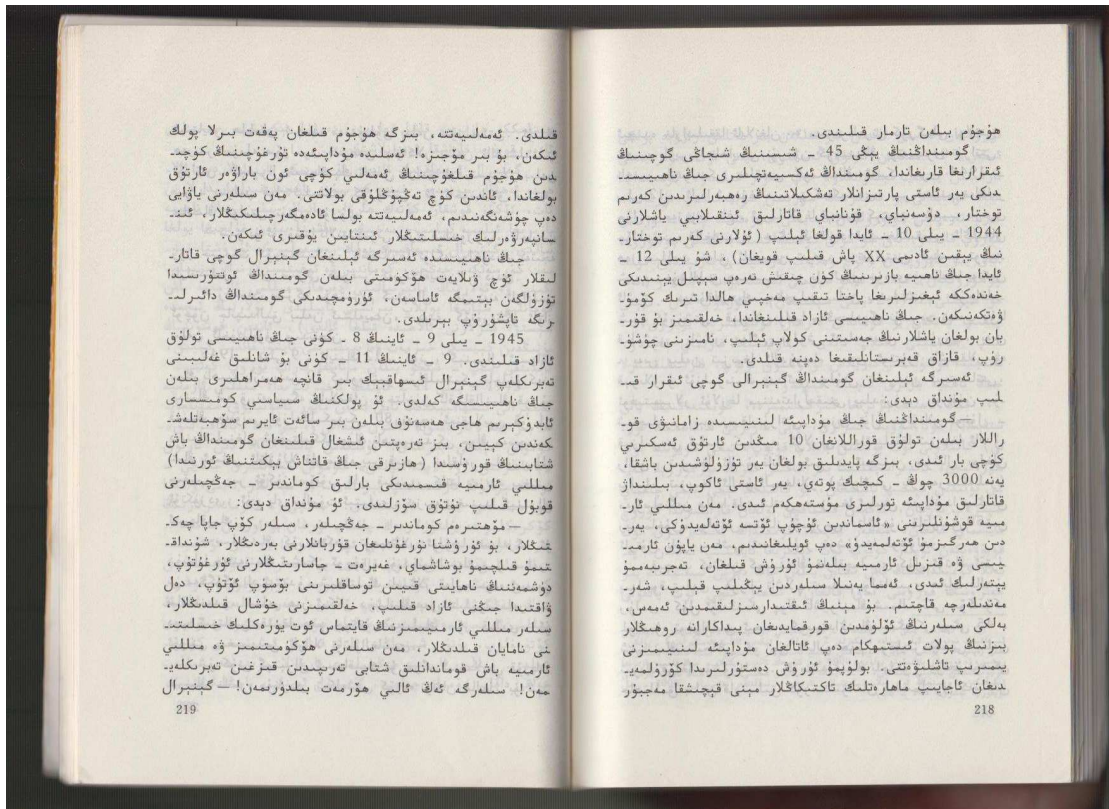 ھۇجۇم بىلەن تارمار قىلىندى.
گومىنداڭنىڭ يېڭى 45 ـ شىسىنىڭ شىجاڭى گوچىنىڭ
ئىقرارىغا قارىغاندا، گومىنداڭ ئەكسىيەتچىلىرى جىڭ ناھىيىسىـ
دىكى يەر ئاستى پارتىزانلار تەشكىلاتىنىڭ رەھبەرلىرىدىن كەرىم
توختار، دۆسەنباي، قۇنانباي قاتارلىق ئىنقىلابىي ياشلارنى
1944 ـ يىلى 10 ـ ئايدا قولغا ئېلىپ (ئۇلارنى كەرىم توختارـ
نىڭ يېقىن ئادىمى XX پاش قىلىپ قويغان)، شۇ يىلى 12 ـ
ئايدا جىڭ ناھىيە بازىرىنىڭ كۈن چىقىش تەرەپ سېپىل يېنىدىكى
خەندەككە ئېغىزلىرىغا پاختا تىقىپ مەخپىي ھالدا تىرىك كۆمۈـ
ۋەتكەنىكەن. جىڭ ناھىيىسى ئازاد قىلىنغاندا، خەلقىمىز بۇ قۇرـ
بان بولغان ياشلارنىڭ جەسىتىنى كولاپ ئېلىپ، نامىزىنى چۈشۈـ
رۈپ، قازاق قەبرىستانلىقىغا دەپنە قىلدى.
ئەسىرگە ئېلىنغان گومىنداڭ گېنېرالى گوچى ئىقرار قىـ
لىپ مۇنداق دېدى:
— گومىنداڭنىڭ جىڭ مۇداپىئە لىنىيىسىدە زامانىۋى قوـ
راللار بىلەن تولۇق قوراللانغان 10 مىڭدىن ئارتۇق ئەسكىرىي
كۈچى بار ئىدى، بىزگە پايدىلىق بولغان يەر تۈزۈلۈشىدىن باشقا،
يەنە 3000 چوڭ ـ كىچىك پوتەي، يەر ئاستى ئاكوپ، بىلىنداژ
قاتارلىق مۇداپىئە تورلىرى مۇستەھكەم ئىدى. مەن مىللىي ئارـ
مىيە قوشۇنلىرىنى «ئاسماندىن ئۇچۇپ ئۆتسە ئۆتەلەيدۇكى، يەرـ
دىن ھەرگىزمۇ ئۆتەلمەيدۇ» دەپ ئويلىغانىدىم، مەن ياپون ئارمىـ
يىسى ۋە قىزىل ئارمىيە بىلەنمۇ ئۇرۇش قىلغان، تەجرىبەممۇ
يېتەرلىك ئىدى، ئەمما يەنىلا سىلەردىن يېڭىلىپ قېلىپ، شەرـ
مەندىلەرچە قاچتىم. بۇ مېنىڭ ئىقتىدارسىزلىقىمدىن ئەمەس،
بەلكى سىلەرنىڭ ئۆلۈمدىن قورقمايدىغان پىداكارانە روھىڭلار
بىزنىڭ پولات ئىستىھكام دەپ ئاتالغان مۇداپىئە لىنىيىمىزنى
يىمىرىپ تاشلىۋەتتى. بولۇپمۇ ئۇرۇش دەستۇرلىرىدا كۆرۈلمەيـ
دىغان ئاجايىپ ماھارەتلىك تاكتىكاڭلار مېنى قېچىشقا مەجبۇر
218
قىلدى. ئەمەلىيەتتە، بىزگە ھۇجۇم قىلغان پەقەت بىرلا پولك
ئىكەن، بۇ بىر مۆجىزە! ئەسلىدە مۇداپىئەدە تۇرغۇچىنىڭ كۈچىـ
دىن ھۇجۇم قىلغۇچىنىڭ ئەمەلىي كۈچى ئون باراۋەر ئارتۇق
بولغاندا، ئاندىن كۈچ تەڭپۇڭلۇقى بولاتتى. مەن سىلەرنى ياۋايى
دەپ چۈشەنگەنىدىم، ئەمەلىيەتتە بولسا ئادەمگەرچىلىكىڭلار، ئىنـ
سانپەرۋەرلىك خىسلىتىڭلار ئىنتايىن يۇقىرى ئىكەن.
جىڭ ناھىيىسىدە ئەسىرگە ئېلىنغان گېنېرال گوچى قاتارـ
لىقلار ئۈچ ۋىلايەت ھۆكۈمىتى بىلەن گومىنداڭ ئوتتۇرىسىدا
تۈزۈلگەن بېتىمگە ئاساسەن، ئۈرۈمچىدىكى گومىنداڭ دائىرلىـ
رىگە تاپشۇرۇپ بېرىلدى.
1945 ـ يىلى 9 ـ ئاينىڭ 8 ـ كۈنى جىڭ ناھىيىسى تولۇق
ئازاد قىلىندى. 9 ـ ئاينىڭ 11 ـ كۈنى بۇ شانلىق غەلىبىنى
تەبرىكلەپ گېنېرال ئىسھاقبېك بىر قانچە ھەمراھلىرى بىلەن
جىڭ ناھىيىسىگە كەلدى. ئۇ پولكنىڭ سىياسىي كومىسسارى
ئابدۇكېرىم ھاجى ھەسەنوۋ بىلەن بىر سائەت ئايرىم سۆھبەتلەشـ
كەندىن كېيىن، بىز تەرەپتىن ئىشغال قىلىنغان گومىنداڭ باش
شتابىنىڭ قورۇسىدا (ھازىرقى جىڭ قاتناش بېكىتىنىڭ ئورنىدا)
مىللىي ئارمىيە قىسمىدىكى بارلىق كوماندىر ـ جەڭچىلەرنى
قوبۇل قىلىپ نۇتۇق سۆزلىدى. ئۇ مۇنداق دېدى:
— مۆھتىرەم كوماندىر ـ جەڭچىلەر، سىلەر كۆپ جاپا چەكـ
تىڭلار، بۇ ئۇرۇشتا نۇرغۇنلىغان قۇربانلارنى بەردىڭلار، شۇنداقـ
تىمۇ قىلچىمۇ بوشاشماي، غەيرەت ـ جاسارىتىڭلارنى ئۇرغۇتۇپ،
دۈشمەننىڭ ناھايىتى قىيىن توساقلىرىنى بۆسۈپ ئۆتۈپ، دەل
ۋاقتىدا جىڭنى ئازاد قىلىپ، خەلقىمىزنى خۇشال قىلدىڭلار،
سىلەر مىللىي ئارمىيىمىزنىڭ قايتماس ئوت يۈرەكلىك خىسلىتىـ
نى نامايان قىلدىڭلار، مەن سىلەرنى ھۆكۈمىتىمىز ۋە مىللىي
ئارمىيە باش قوماندانلىق شتابى تەرىپىدىن قىزغىن تەبرىكلەيـ
مەن! سىلەرگە ئەڭ ئالىي ھۆرمەت بىلدۈرىمەن! — گېنېرال
219